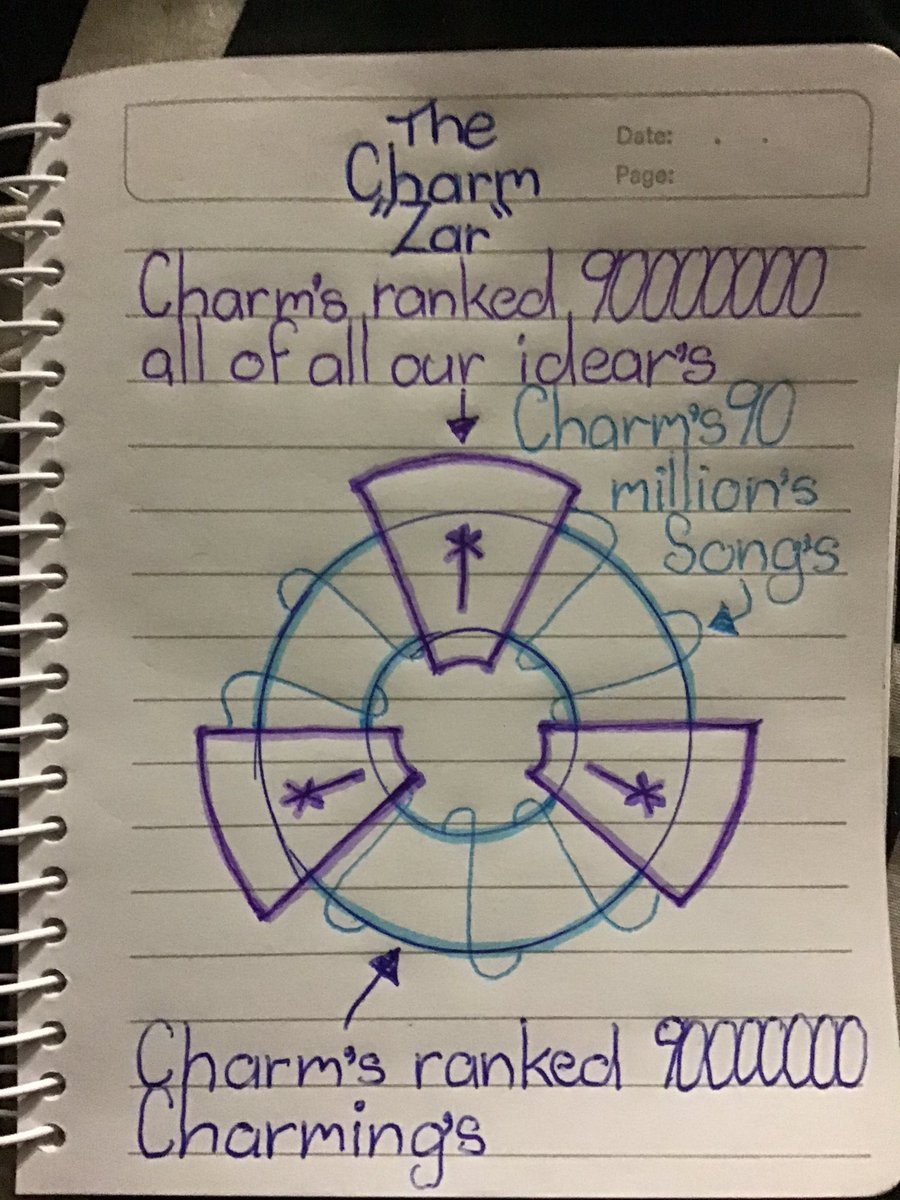 The
Date: . .
Charm
Page:
"Zar"
Charm's ranked 90000000
all of all our idear's
Charm's 90
million's
Song's
Charm's ranked 90000000
Charming's